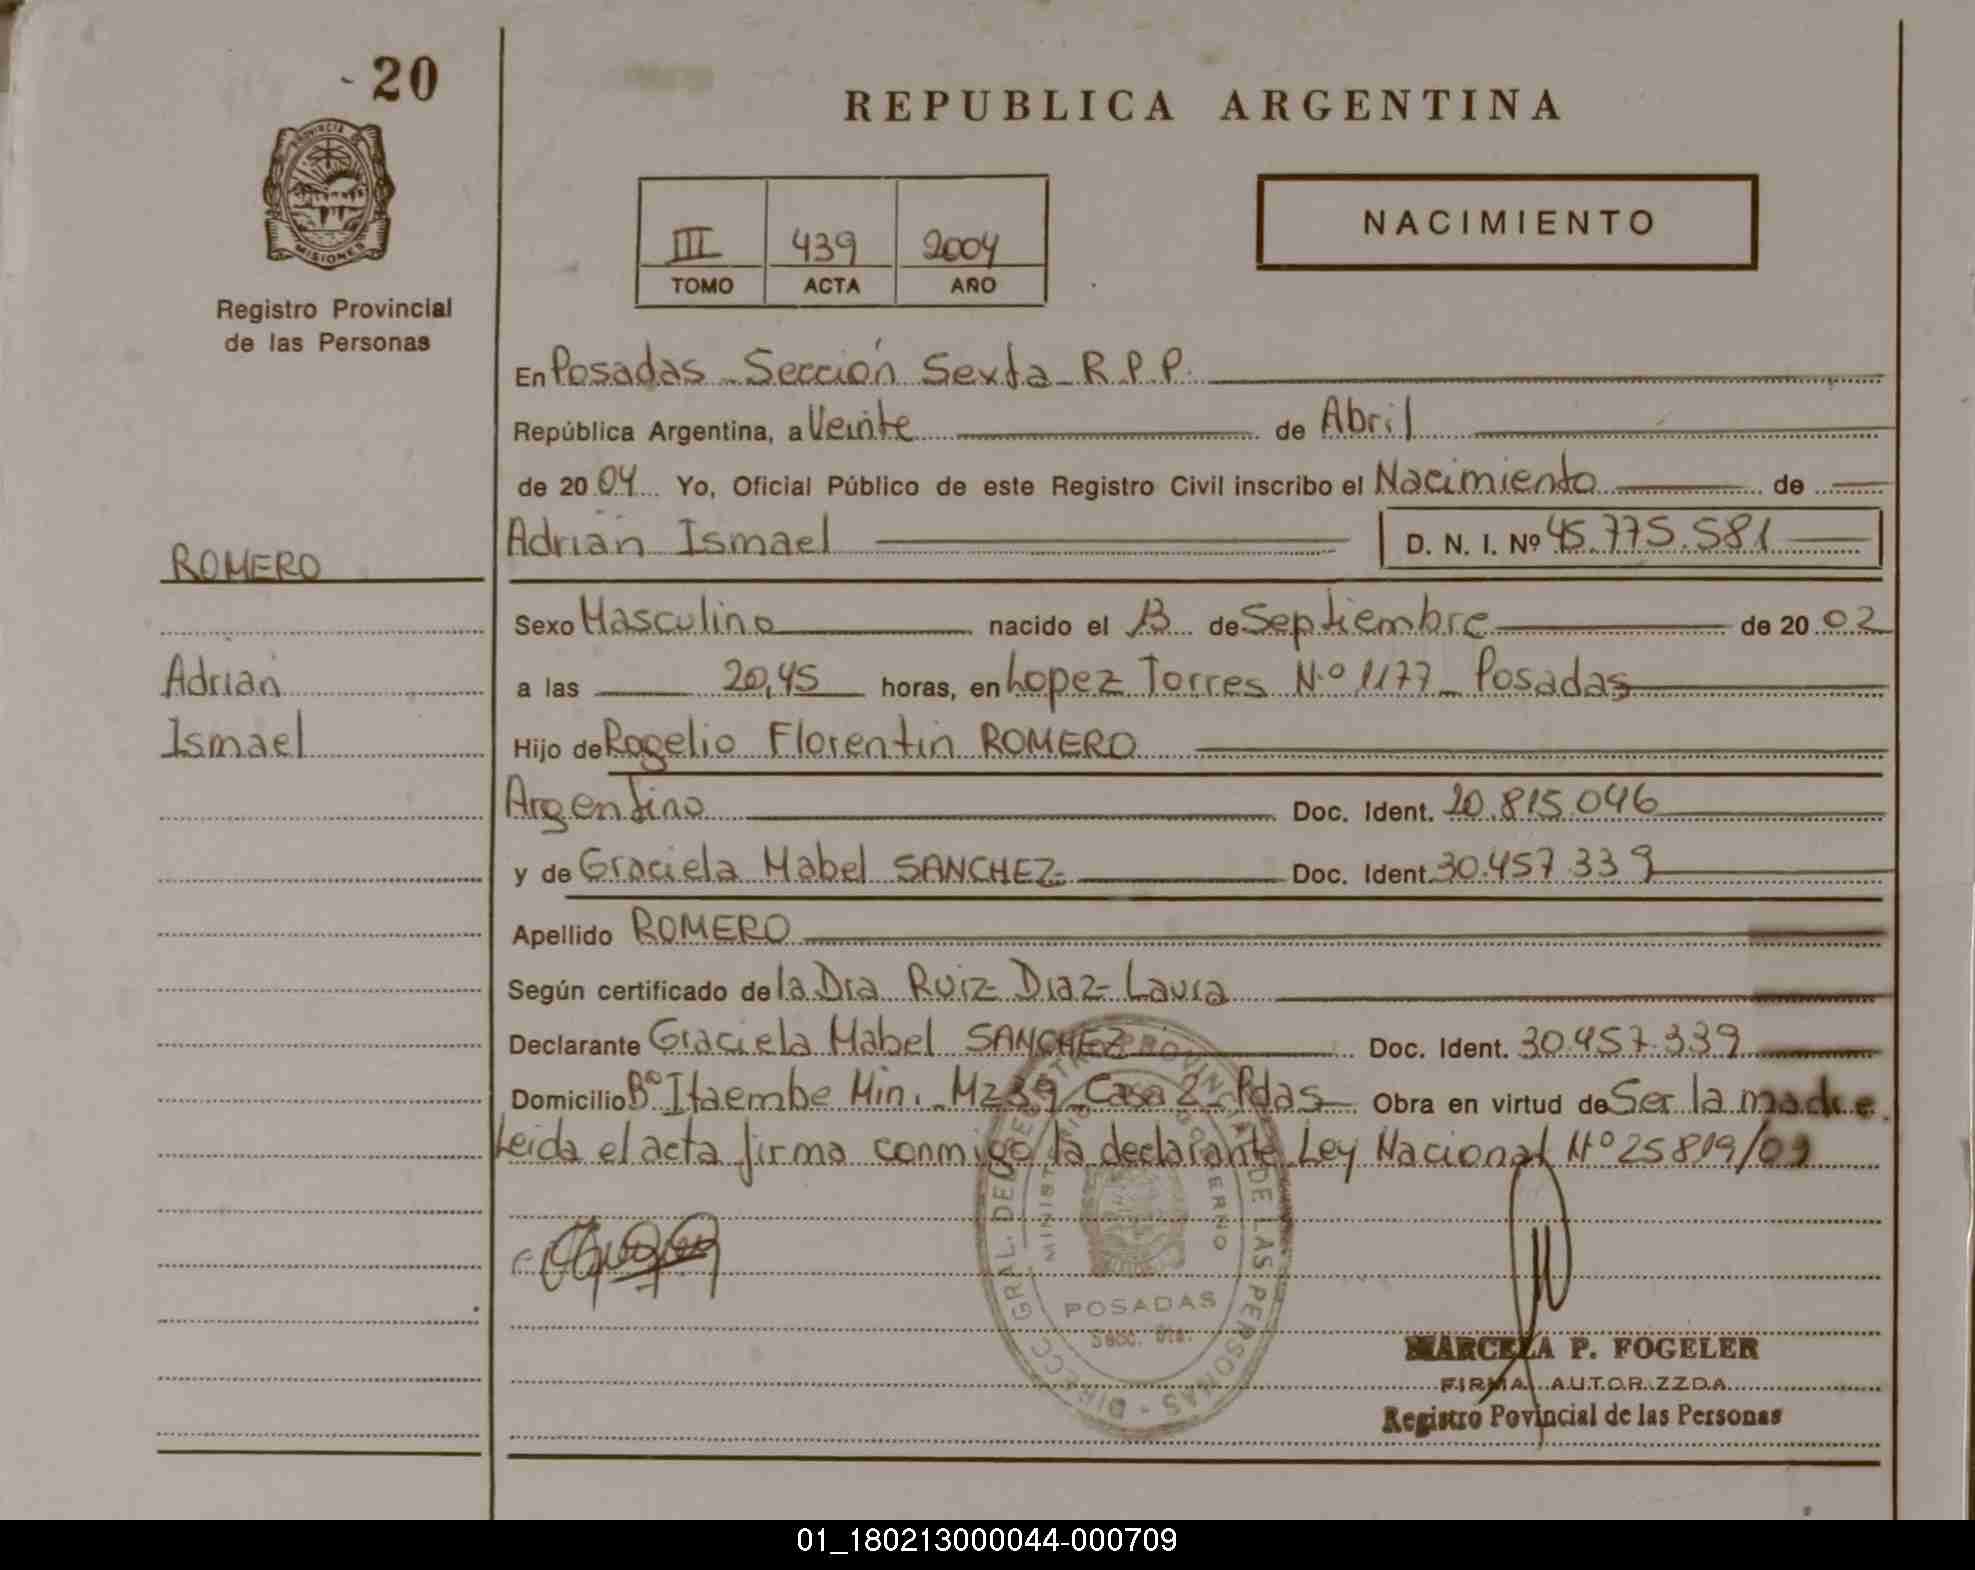 - 20
PROVINCIA DE
MISIONES
Registro Provincial
de las Personas
REPUBLICA ARGENTINA
III 439 2004
TOMO ACTA AÑO
NACIMIENTO
En Posadas - Sección Sexta - R.P.P.
República Argentina, a Veinte de Abril
de 20 04 Yo, Oficial Público de este Registro Civil inscribo el Nacimiento de
Adrián Ismael D. N. I. Nº 45.775.581
ROMERO
Adrián
Ismael
Sexo Masculino nacido el 13 de Septiembre de 20 02
a las 20,45 horas, en Lopez Torres N.º 1177 - Posadas
Hijo de Rogelio Florentin ROMERO
Argentino Doc. Ident. 20.815.046
y de Graciela Mabel SANCHEZ Doc. Ident. 30.457.339
Apellido ROMERO
Según certificado de la Dra Ruiz Diaz Laura
Declarante Graciela Mabel SANCHEZ Doc. Ident. 30.457.339
Domicilio Bº Itaembe Min. Mz 39 Casa 2 - Pdas Obra en virtud de Ser la madre.
Leida el acta firma conmigo la declarante Ley Nacional Nº 25819/03
DIRECC GRAL. DEL REGISTRO PROVINCIAL DE LAS PERSONAS
MINISTERIO GOBIERNO
POSADAS
Secc. 6ta.
MARCELA P. FOGELER
FIRMA AUTORIZZDA
Registro Povincial de las Personas
01_180213000044-000709